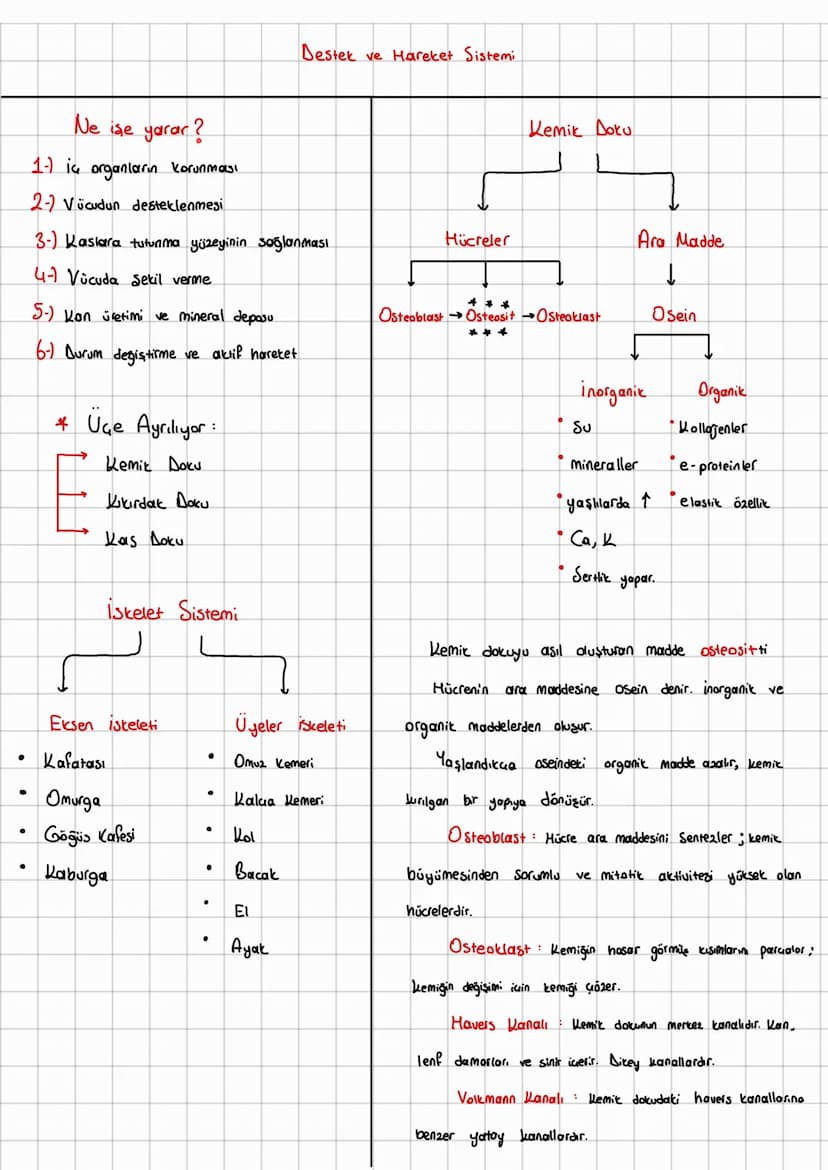 Destek ve Hareket Sistemi
Ne işe yarar?
1-) iç organların korunması
2-) Vücudun desteklenmesi
3-) Kaslara tutunma yüzeyinin sağlanması
4-) Vücuda şekil verme
5-) Kan üretimi ve mineral deposu
6-) Durum değiştirme ve aktif hareket
* Üçe Ayrılıyor :
Kemik Doku
Kıkırdak Doku
Kas Doku
İskelet Sistemi
Eksen iskeleti
• Kafatası
• Omurga
• Göğüs Kafesi
• Kaburga
Üyeler iskeleti
• Omuz Kemeri
• Kalça Kemeri
• Kol
• Bacak
• El
• Ayak
Kemik Doku
Hücreler
Osteoblast → Osteosit → Osteoklast
Ara Madde
Osein
inorganik
• Su
• mineraller
• yaşlılarda ↑
• Ca, K
• Sertlik yapar.
Organik
• Kollajenler
• e-proteinler
• elastik özellik
Kemik dokuyu asıl oluşturan madde osteositti
Hücrenin ara maddesine osein denir. inorganik ve
organik maddelerden oluşur.
Yaşlandıkça oseindeki organik madde azalır, kemik
kırılgan bir yapıya dönüşür.
Osteoblast : Hücre ara maddesini Sentezler ; kemik
büyümesinden sorumlu ve mitotik aktivitesi yüksek olan
hücrelerdir.
Osteoklast : Kemiğin hasar görmüş kısımlarını parçalar ;
kemiğin değişimi için kemiği çözer.
Havers Kanalı : Kemik dokunun merkez kanalıdır. Kan,
lenf damarları ve sinir içerir. Dikey kanallardır.
Volkmann Kanalı : Kemik dokudaki havers kanallarına
benzer yatay kanallardır.